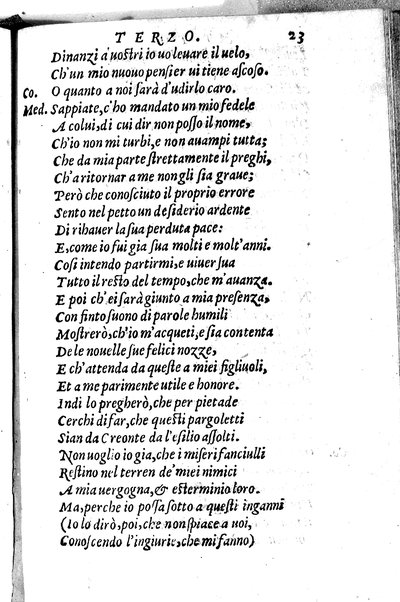 TERZO. 23
Dinanzi a' uostri io uo leuare il uelo,
Ch'un mio nuouo pensier ui tiene ascoso.
Co. O quanto a noi sarà d'udirlo caro.
Med. Sappiate, c'ho mandato un mio fedele
A colui, di cui dir non posso il nome,
Ch'io non mi turbi, e non auampi tutta;
Che da mia parte strettamente il preghi,
Ch'a ritornar a me non gli sia graue;
Però che conosciuto il proprio errore
Sento nel petto un desiderio ardente
Di rihauer la sua perduta pace:
E, come io fui gia sua molti e molt'anni.
Cosi intendo partirmi, e uiuer sua
Tutto il resto del tempo, che m'auanza.
E poi ch'ei sarà giunto a mia presenza,
Con finto suono di parole humili
Mostrerò, ch'io m'acqueti, e sia contenta
De le nouelle sue felici nozze,
E ch'attenda da queste a miei figliuoli,
Et a me parimente utile e honore.
Indi lo pregherò, che per pietade
Cerchi di far, che questi pargoletti
Sian da Creonte da l'esilio assolti.
Non uoglio io gia, che i miseri fanciulli
Restino nel terren de' miei nimici
A mia uergogna, & esterminio loro.
Ma, perche io possa sotto a questi inganni
(Io lo dirò, poi, che non spiace a uoi,
Conoscendo l'ingiurie, che mi fanno)